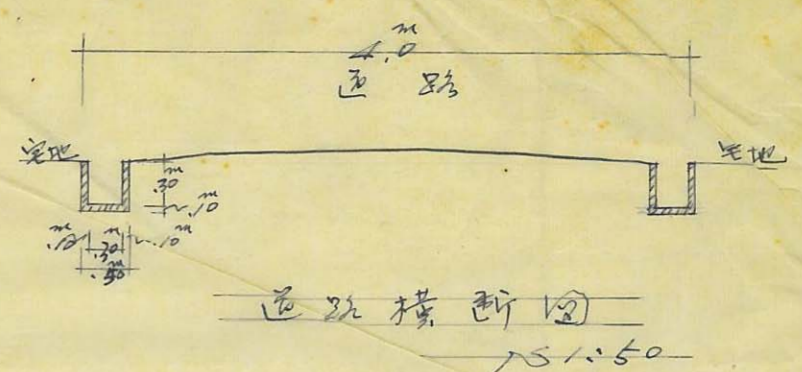 4.0m
道路
宅地
宅地
.30m
.10m
.10m
.30m
.10m
.50m
道路横断図
S 1:50